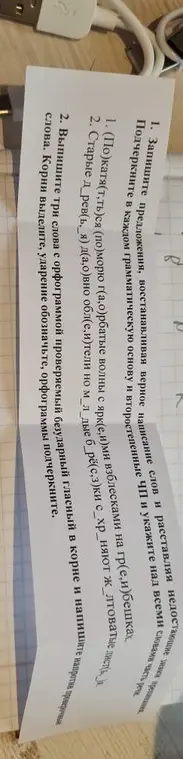 1. Запишите предложения, восстанавливая верное написание слов и расставляя недостающие знаки препинания.
Подчеркните в каждом грамматическую основу и второстепенные ЧП и укажите над всеми словами часть речи
1. (По)катя(т,ть)ся (по)морю г(а,о)рбатые волны с ярк(е,и)ми взблесками на гр(е,и)бешках.
2. Старые д_рев(ь,_я) д(а,о)вно обл(е,и)тели но м_л_дые б_рё(с,з)ки с_хр_няют ж_лтоватые лист(ь,_)я
2. Выпишите три слова с орфограммой проверяемый безударный гласный в корне и напишите напротив проверочные
слова. Корни выделите, ударение обозначьте, орфограммы подчеркните.